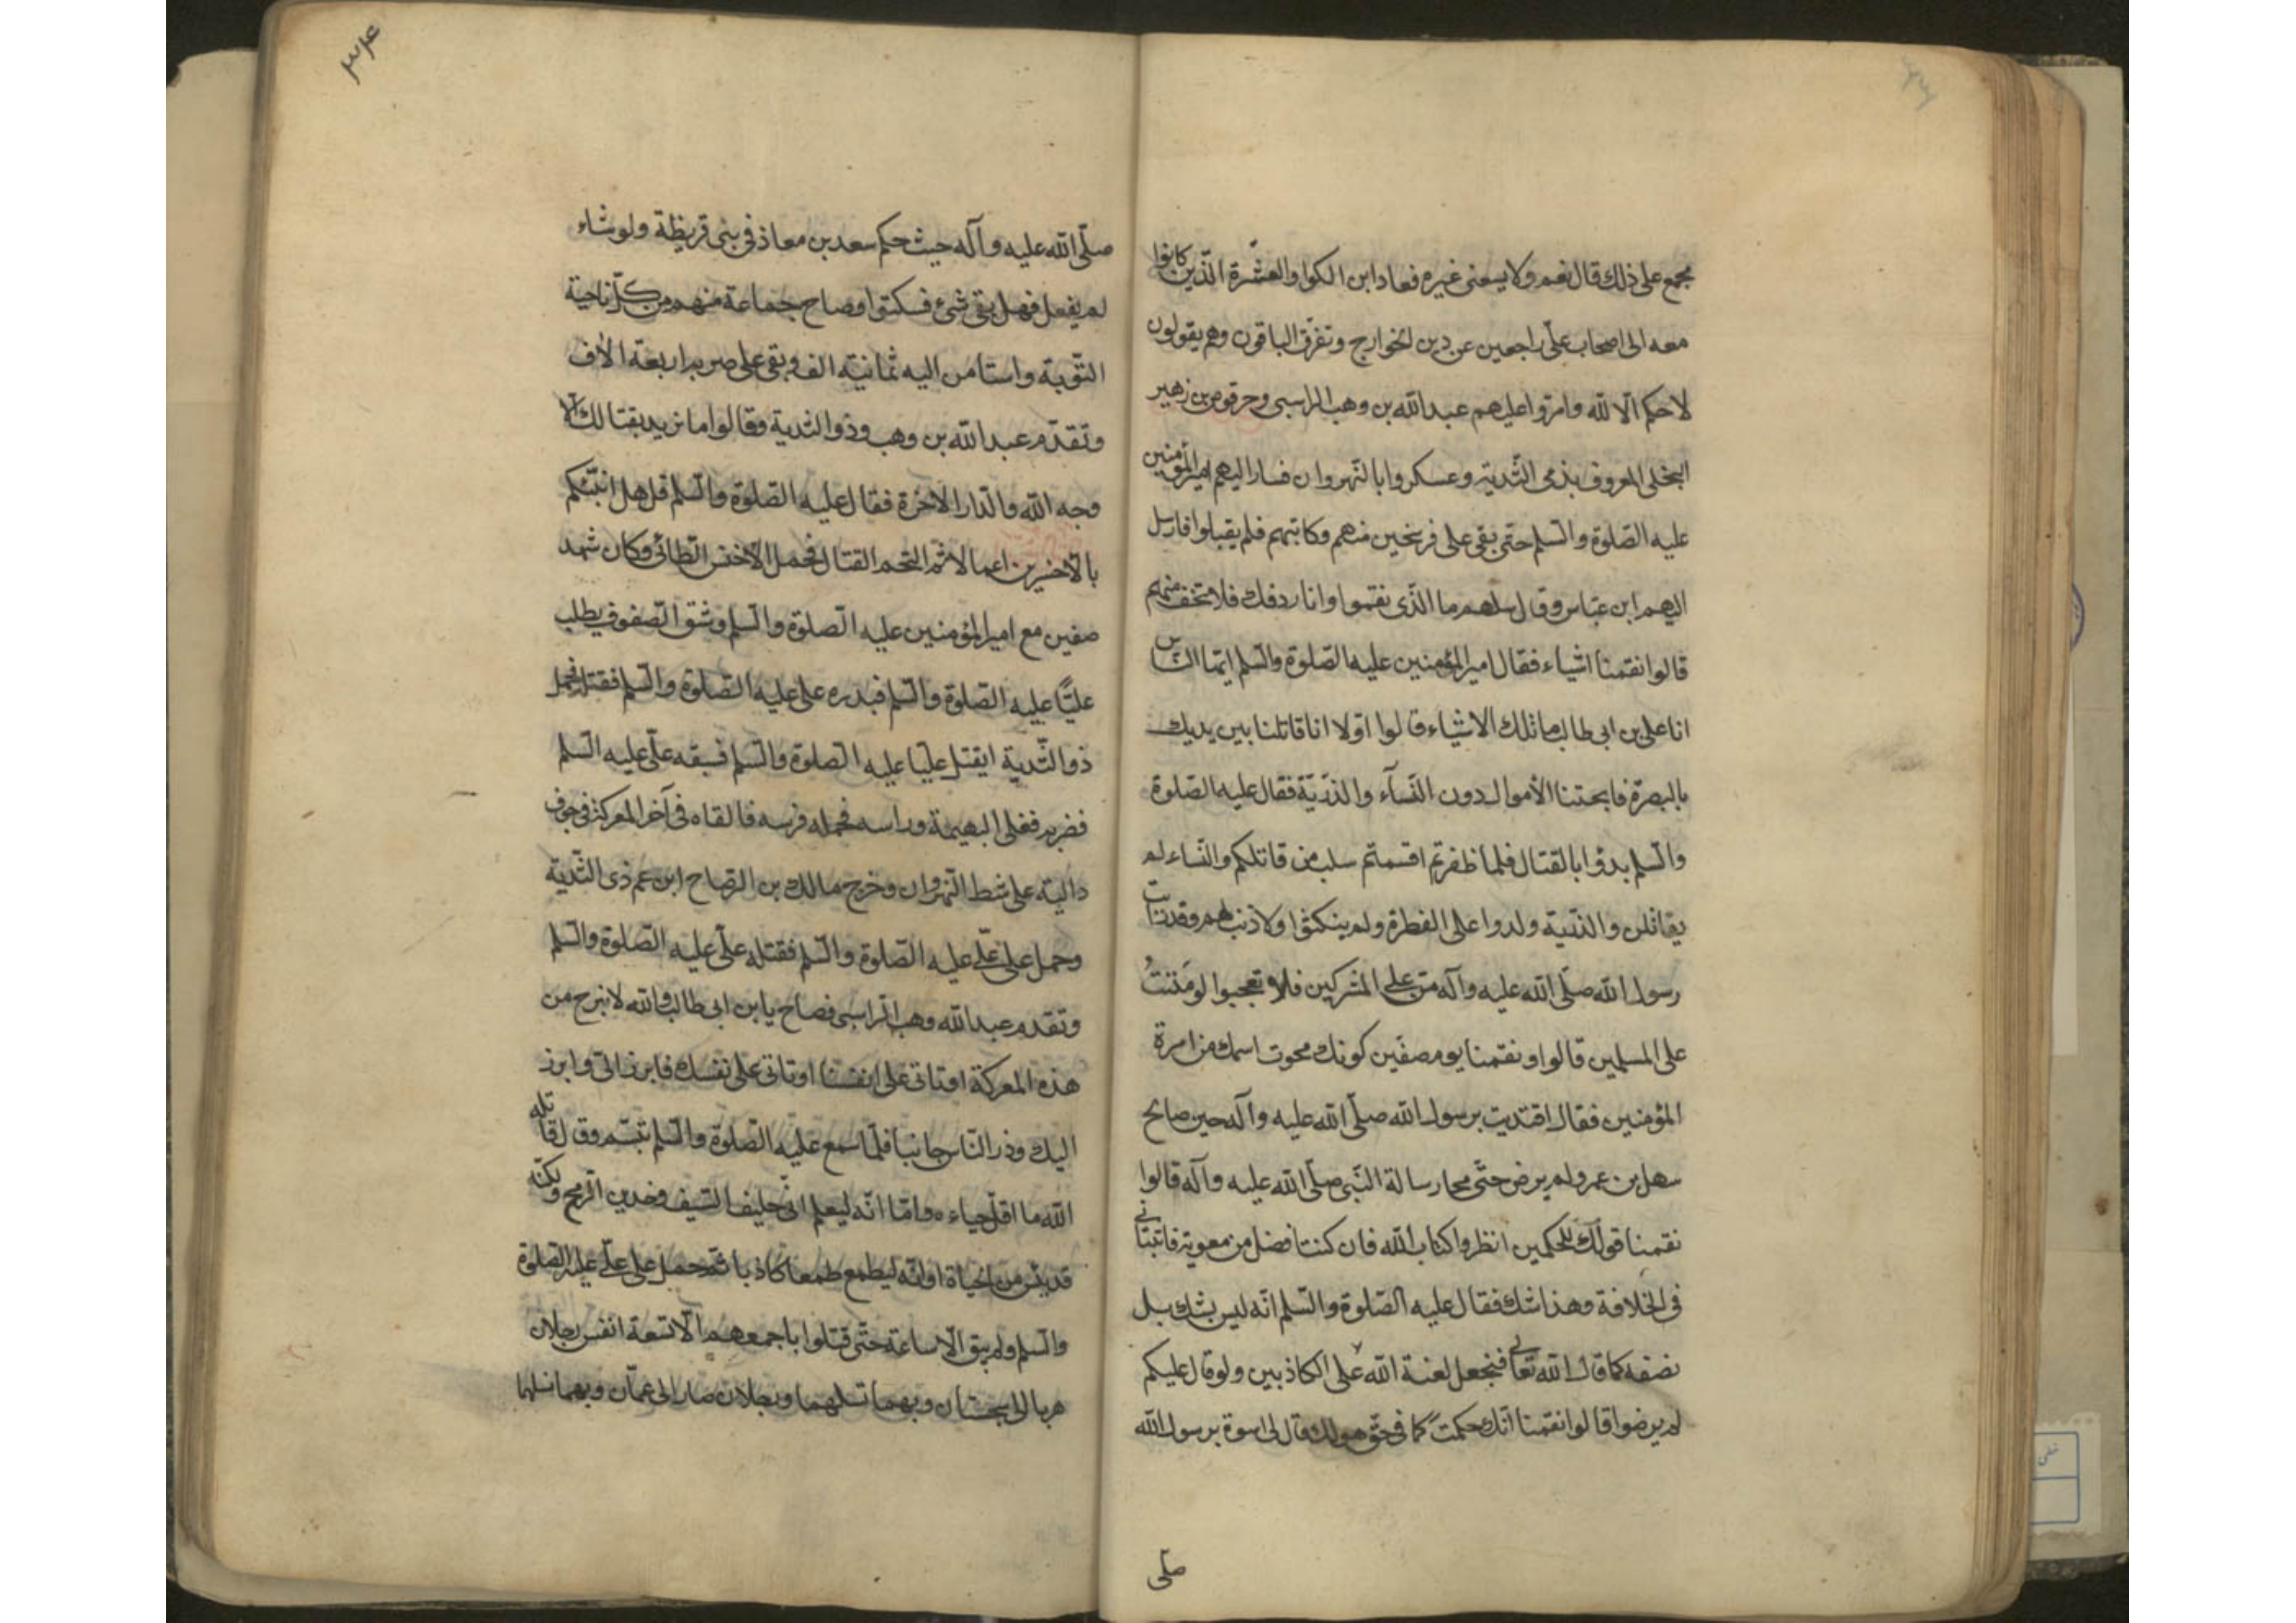 مجمع على ذلك قال نعم ولا يسعنى غيره فعاد ابن الكوا والعشرة الّذين كانوا
معه الى اصحاب علىّ راجعين عن دين الخوارج وتفرّق الباقون وهم يقولون
لا حكم الّا لله وامّروا عليهم عبد الله بن وهب الراسبى وحرقوص بن زهير
البجلى المعروف بذى الثّدية وعسكروا بالنّهروان فسار اليهم امير المؤمنين
عليه الصّلوة والسّلم حتى بقى على فرسخين منهم وكاتبهم فلم يقبلوا فارسل
اليهم ابن عبّاس وقال سلهم ما الّذى نقموا وانا ردفك فلا تخف منهم
قالوا نقمنا اشياء فقال امير المؤمنين عليه الصّلوة والسّلم ايّها النّاس
انا على بن ابى طالب ما تلك الاشياء قالوا اوّلا انا قاتلنا بين يديك
بالبصرة فابحتنا الأموال دون النّسآء والذرّيّة فقال عليه الصّلوة
والسّلم بدؤا بالقتال فلما ظفرتم اقسمتم سلب من قاتلكم والنّساء لم
يقاتلن والذّريّة ولدوا على الفطرة ولم ينكثوا ولا ذنب لهم وقد رايت
رسول الله صلّى الله عليه وآله منّ على المشركين فلا تعجبوا لو مَنَنتُ
على المسلمين قالوا ونقمنا يوم صفّين كونك محوت اسمك من امرة
المؤمنين فقال اقتديت برسول الله صلّى الله عليه وآله حين صالح
سهل بن عمرو لم يرض حتّى محا رسالة النّبى صلّى الله عليه وآله قالوا
نقمنا قولك للحكمين انظروا كتاب الله فان كنت افضل من معوية فاثبتانى
فى الخلافة وهذا شك فقال عليه الصّلوة والسّلم انّه ليس بشك بل
نصفه كما قال الله تعالى فنجعل لعنة الله على الكاذبين ولو قال عليكم
لم يرضوا قالوا نقمنا انّك حكمت فى حقّ هو لك قال لى اسوة برسول الله
صلّى
۳۴
صلّى الله عليه وآله حيث حكم سعد بن معاذ فى بنى قريظة ولو شاء
لم يفعل فهل بقى شىء فسكتوا وصاح جماعة منهم من كلّ ناحية
التّوبة واستامن اليه ثمانية الف وبقى على حربه اربعة الاف
وتقدّم عبد الله بن وهب وذو الثدية وقالوا ما نريد بقتالك الا
وجه الله والدّار الاخرة فقال عليه الصّلوة والسّلم قل هل انبّئكم
بالاخسرين اعمالا ثم التحم القتال فحمل الاخنس الطائى وكان شهد
صفين مع امير المؤمنين عليه الصّلوة والسّلم وشق الصّفوف يطلب
عليًّا عليه الصّلوة والسّلم فبدره على عليه الصّلوة والسّلم فقتله فحمل
ذو الثّدية ليقتل عليّا عليه الصّلوة والسّلم فسبقه علىّ عليه السّلم
فضربه ففلق البهيمة وراسه فحمله فرسه فالقاه فى آخر المعركة فى جوف
دالية على شط النّهروان وخرج مالك بن الوضّاح ابن عم ذى الثّدية
وحمل على علىّ عليه الصّلوة والسّلم فقتله علىّ عليه الصّلوة والسّلم
وتقدم عبد الله وهب الرّاسبى فصاح يا بن ابى طالب والله لا نبرح من
هذه المعركة او تاتى على انفسنا او ناتى على نفسك فابرز الىّ وابرز
اليك وذر النّاس جانبا فلمّا سمع عليه الصّلوة والسّلم تبسّم وقال قاتله
الله ما اقلّ حياءه وامّا انّه ليعلم انّى حليف السّيف وخدين الرّمح ولكنّه
قد يئس من الحياة او انّه ليطمع طمعا كاذبا ثمّ حمل على علىّ عليه الصّلوة
والسّلم ولم يبق الّا ساعة حتّى قتلوا باجمعهم الّا تسعة انفس رجلان
هربا الى سجستان وبهما نسلهما ورجلان صارا الى عمّان وبهما نسلهما